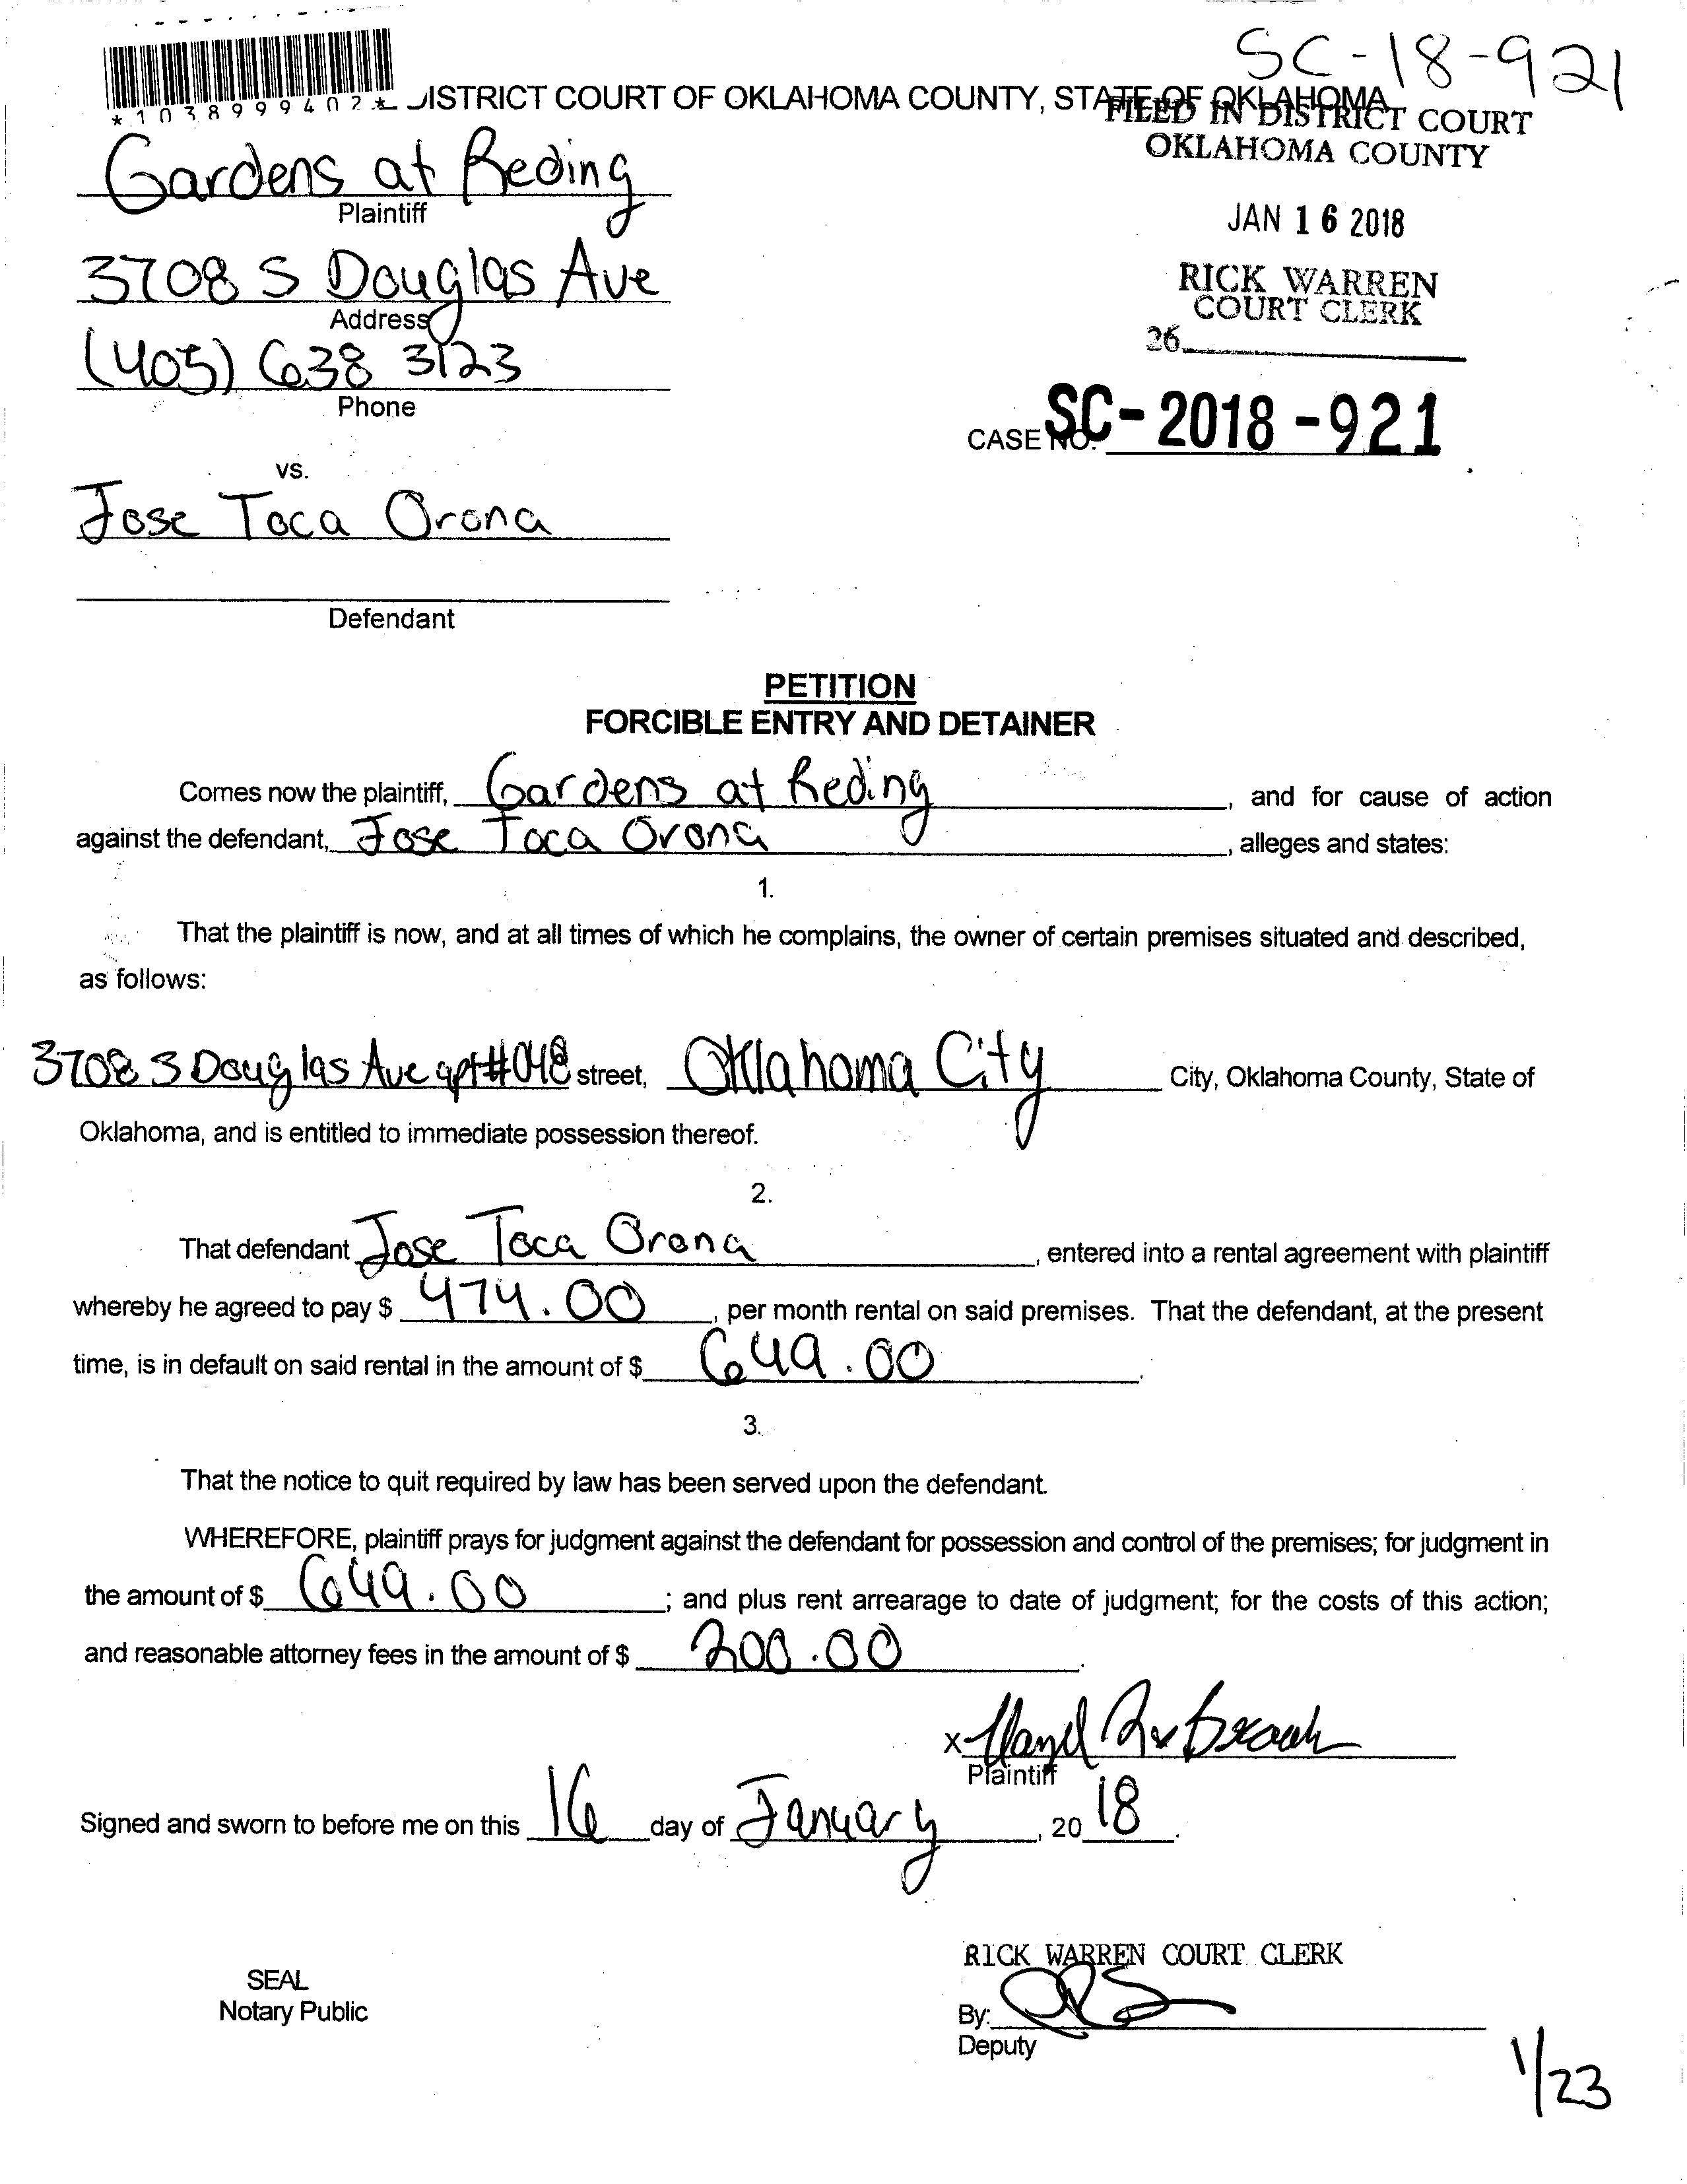 SC-18-921
*1038999402*
DISTRICT COURT OF OKLAHOMA COUNTY, STATE OF OKLAHOMA
FILED IN DISTRICT COURT
OKLAHOMA COUNTY
Gardens at Reding
Plaintiff
JAN 16 2018
3708 S Douglas Ave
Address
RICK WARREN
COURT CLERK
26
(405) 638 3123
Phone
CASE NO. SC-2018-921
vs.
Jose Toca Orona
Defendant
PETITION
FORCIBLE ENTRY AND DETAINER
Comes now the plaintiff, Gardens at Reding, and for cause of action
against the defendant, Jose Toca Orona, alleges and states:
1.
That the plaintiff is now, and at all times of which he complains, the owner of certain premises situated and described,
as follows:
3708 S Douglas Ave apt#048 street, Oklahoma City City, Oklahoma County, State of
Oklahoma, and is entitled to immediate possession thereof.
2.
That defendant Jose Toca Orona, entered into a rental agreement with plaintiff
whereby he agreed to pay $ 474.00, per month rental on said premises. That the defendant, at the present
time, is in default on said rental in the amount of $ 649.00.
3.
That the notice to quit required by law has been served upon the defendant.
WHEREFORE, plaintiff prays for judgment against the defendant for possession and control of the premises; for judgment in
the amount of $ 649.00; and plus rent arrearage to date of judgment; for the costs of this action;
and reasonable attorney fees in the amount of $ 200.00.
X
Plaintiff
Signed and sworn to before me on this 16 day of January, 2018.
RICK WARREN COURT CLERK
SEAL
Notary Public
By:
Deputy
1/23